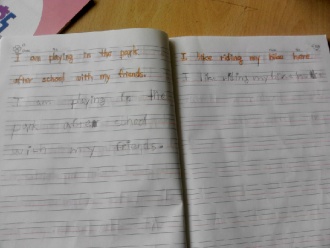 I am playing in the park
after school with my friends.
I am playing in the
park after school
with my friends.
I like riding my bike here.
I like riding